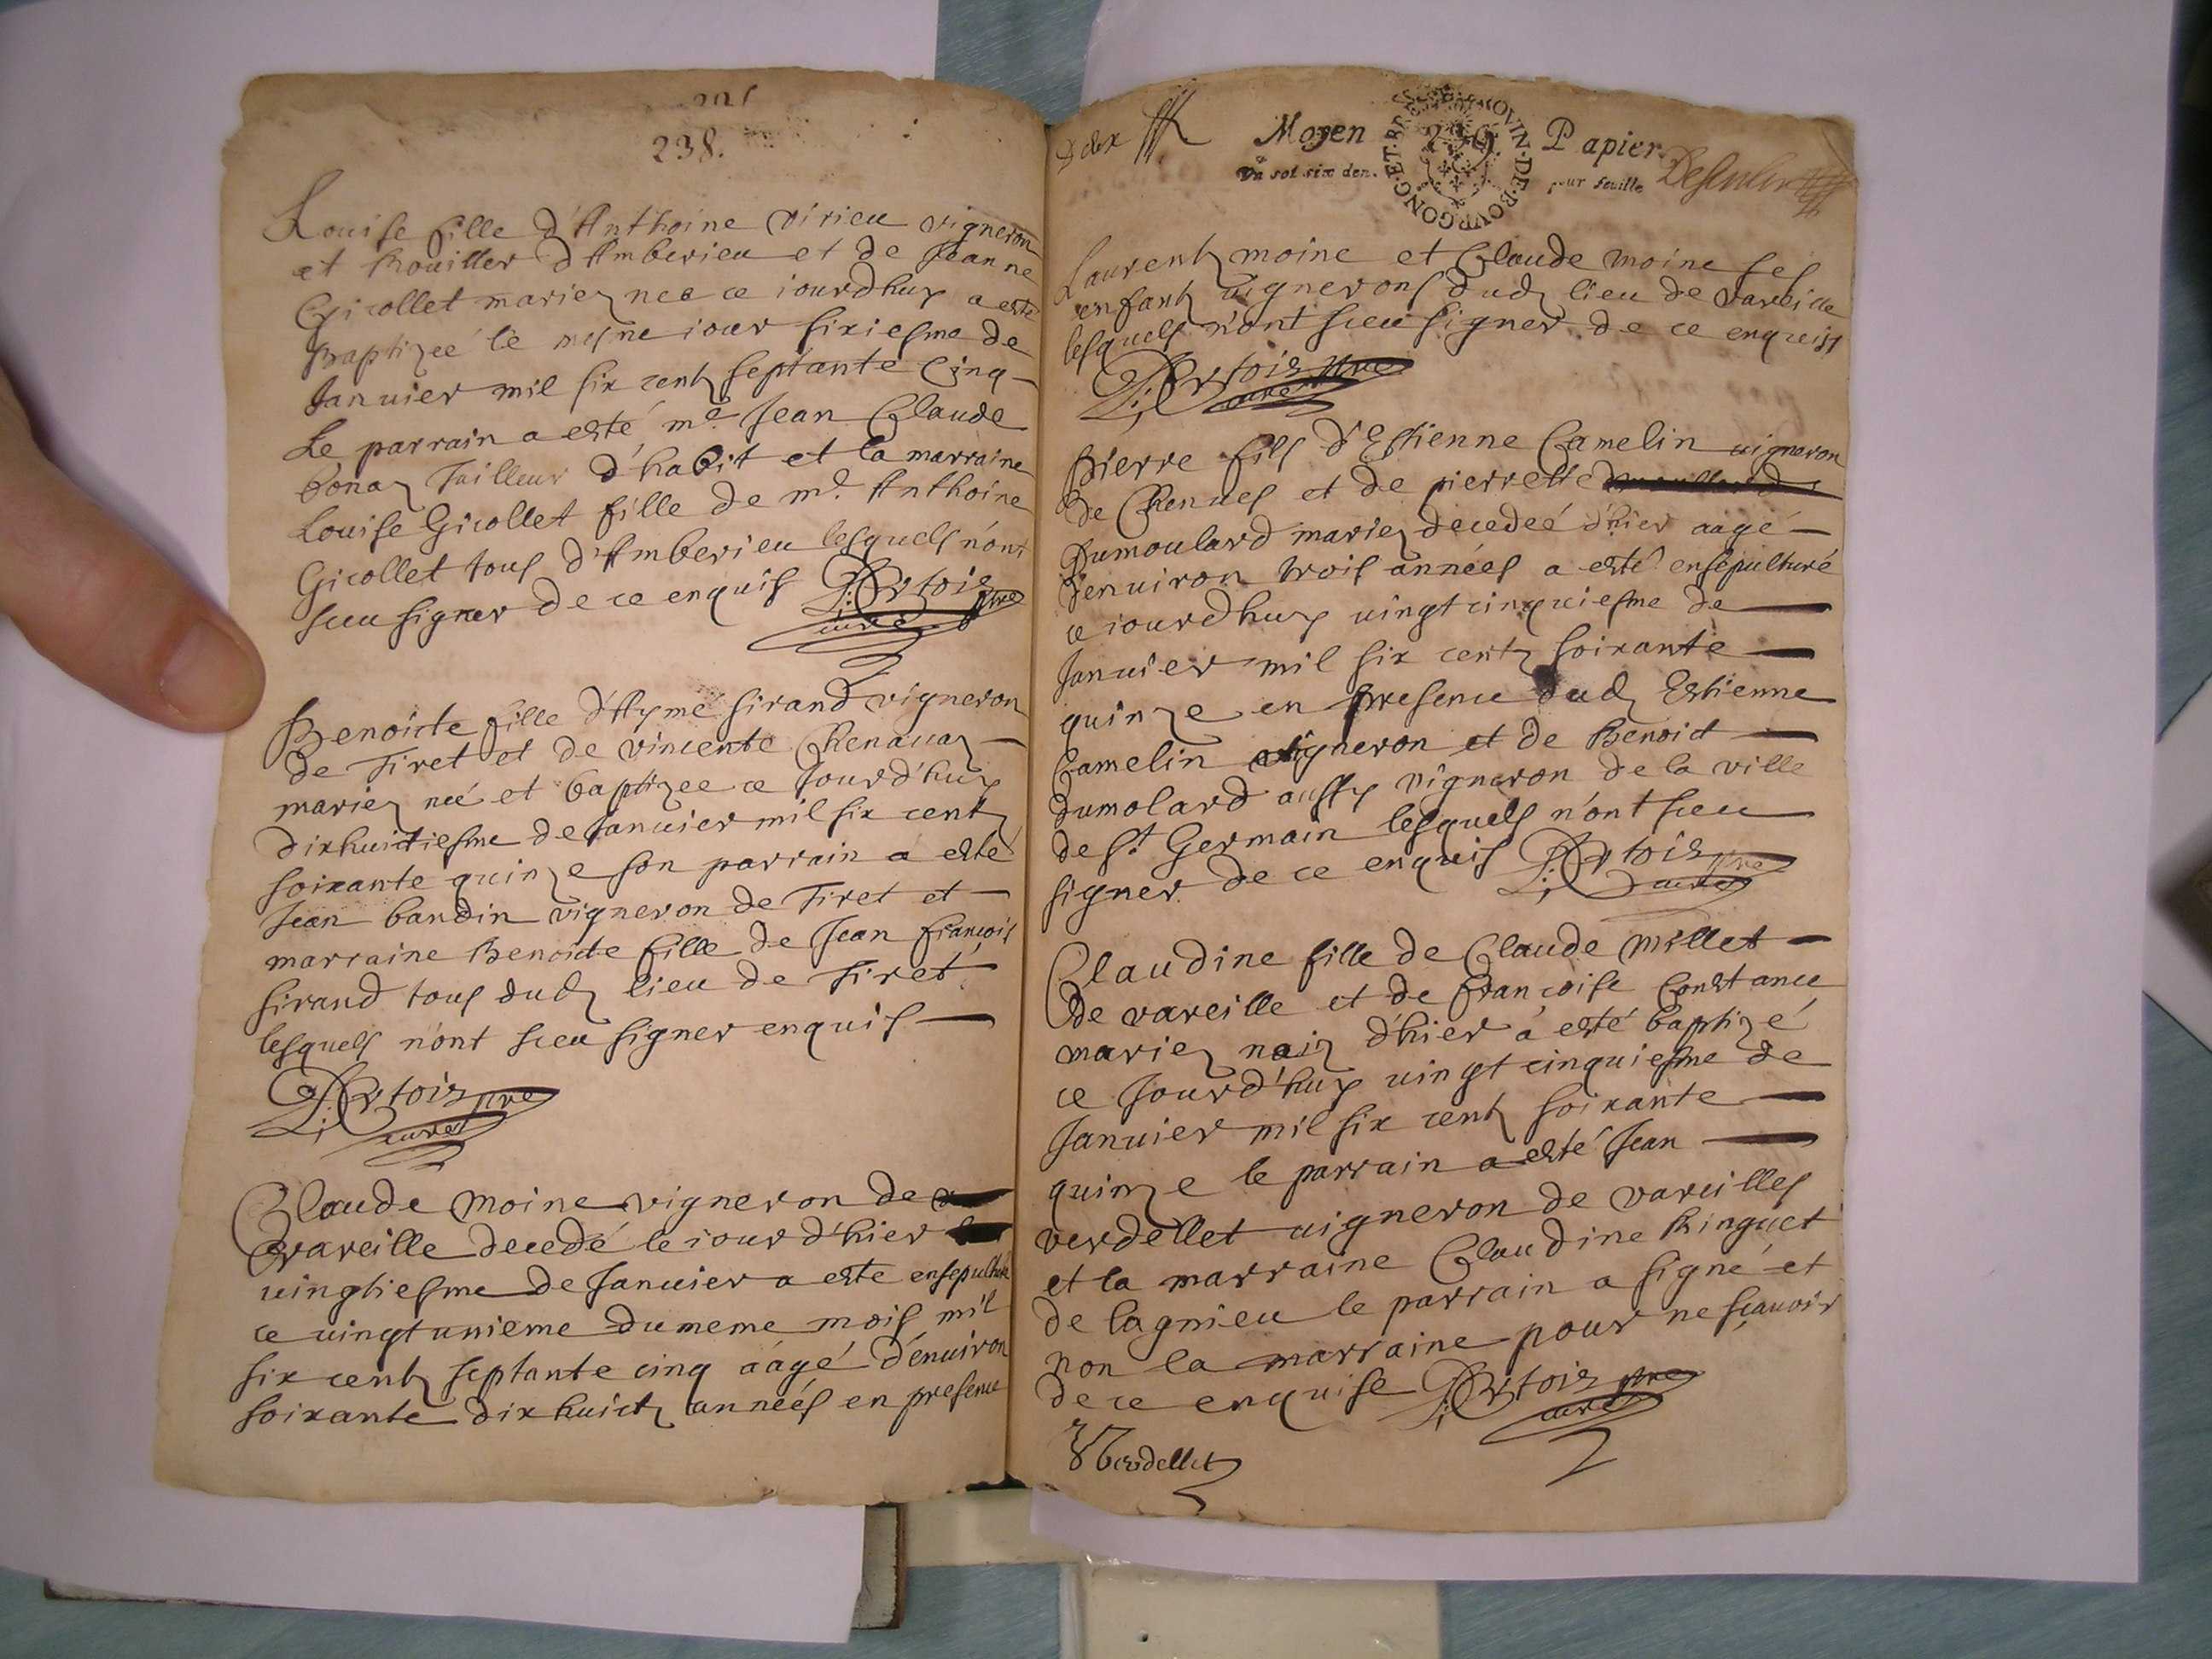 238.
Louise fille d'Anthoine Virieu vigneron
et Rouiller d'Amberieu et de Jeanne
Gicollet mariez nee ce iourdhuy a esté
Baptizeé le mesme iour sixiesme de
Januier mil six centz septante Cinq
Le parrain a esté mᵉ Jean Claude
Bonaz Tailleur d'habit et la marraine
Louise Gicollet fille de mᵉ. Anthoine
Gicollet tous d'Amberieu lesquels n'ont
sceu signer de ce enquis
pbre
curé
Benoicte fille d'Aymé sirand vigneron
de Tiret et de vincente Chenauaz
mariez neé et baptizee ce Jourd'huy
dixhuictiesme de Januier mil six centz
soixante quinze son parrain a esté
Jean baudin vigneron de Tiret et
marraine Benoicte fille de Jean françois
sirand tous dudz lieu de Tiret
lesquels n'ont sceu signer enquis
pbre
curé
Claude Moine vigneron de
vareille decedé le iour d'hier
uingtiesme de Januier a esté ensepulturé
ce uingtunieme du meme mois mil
six centz septante cinq aágé d'enuiron
soixante dix huictz anneés en presence
Moyen 239. Papier.
Vn sol six den. pour feuille
GONG.ET.BRE PROVIN.DE.BOVR
Laurentz moine et Claude moine ses
enfantz uignerons dudz lieu de vareille
lesquels n'ont sceu signer de ce enquis
pbre
curé
Pierre fils d'Estienne Camelin uigneron
de Chenues et de pierrette
Dumoulard mariez decedeé d'hier aagé
d'enuiron trois années a esté ensepulturé
ce iourdhuy uingtcinquiesme de
Januier mil six centz soixante
quinze en presence dudz Estienne
Camelin uigneron et de Benoict
dumolard aussy vigneron de la ville
de Sᵗ Germain lesquels n'ont sceu
signer de ce enquis
pbre
curé
Claudine fille de Claude Millet
de vareille et de françoise Constance
mariez naiz d'hier a esté baptizé
ce Jourd'huy uingtcinquiesme de
Januier mil six centz soixante
quinze le parrain a esté Jean
verdellet uigneron de vareilles
et la marraine Claudine Ringuet
de lagnieu le parrain a signé et
non la marraine pour ne sçauoir
de ce enquise
pbre
curé
Verdellet